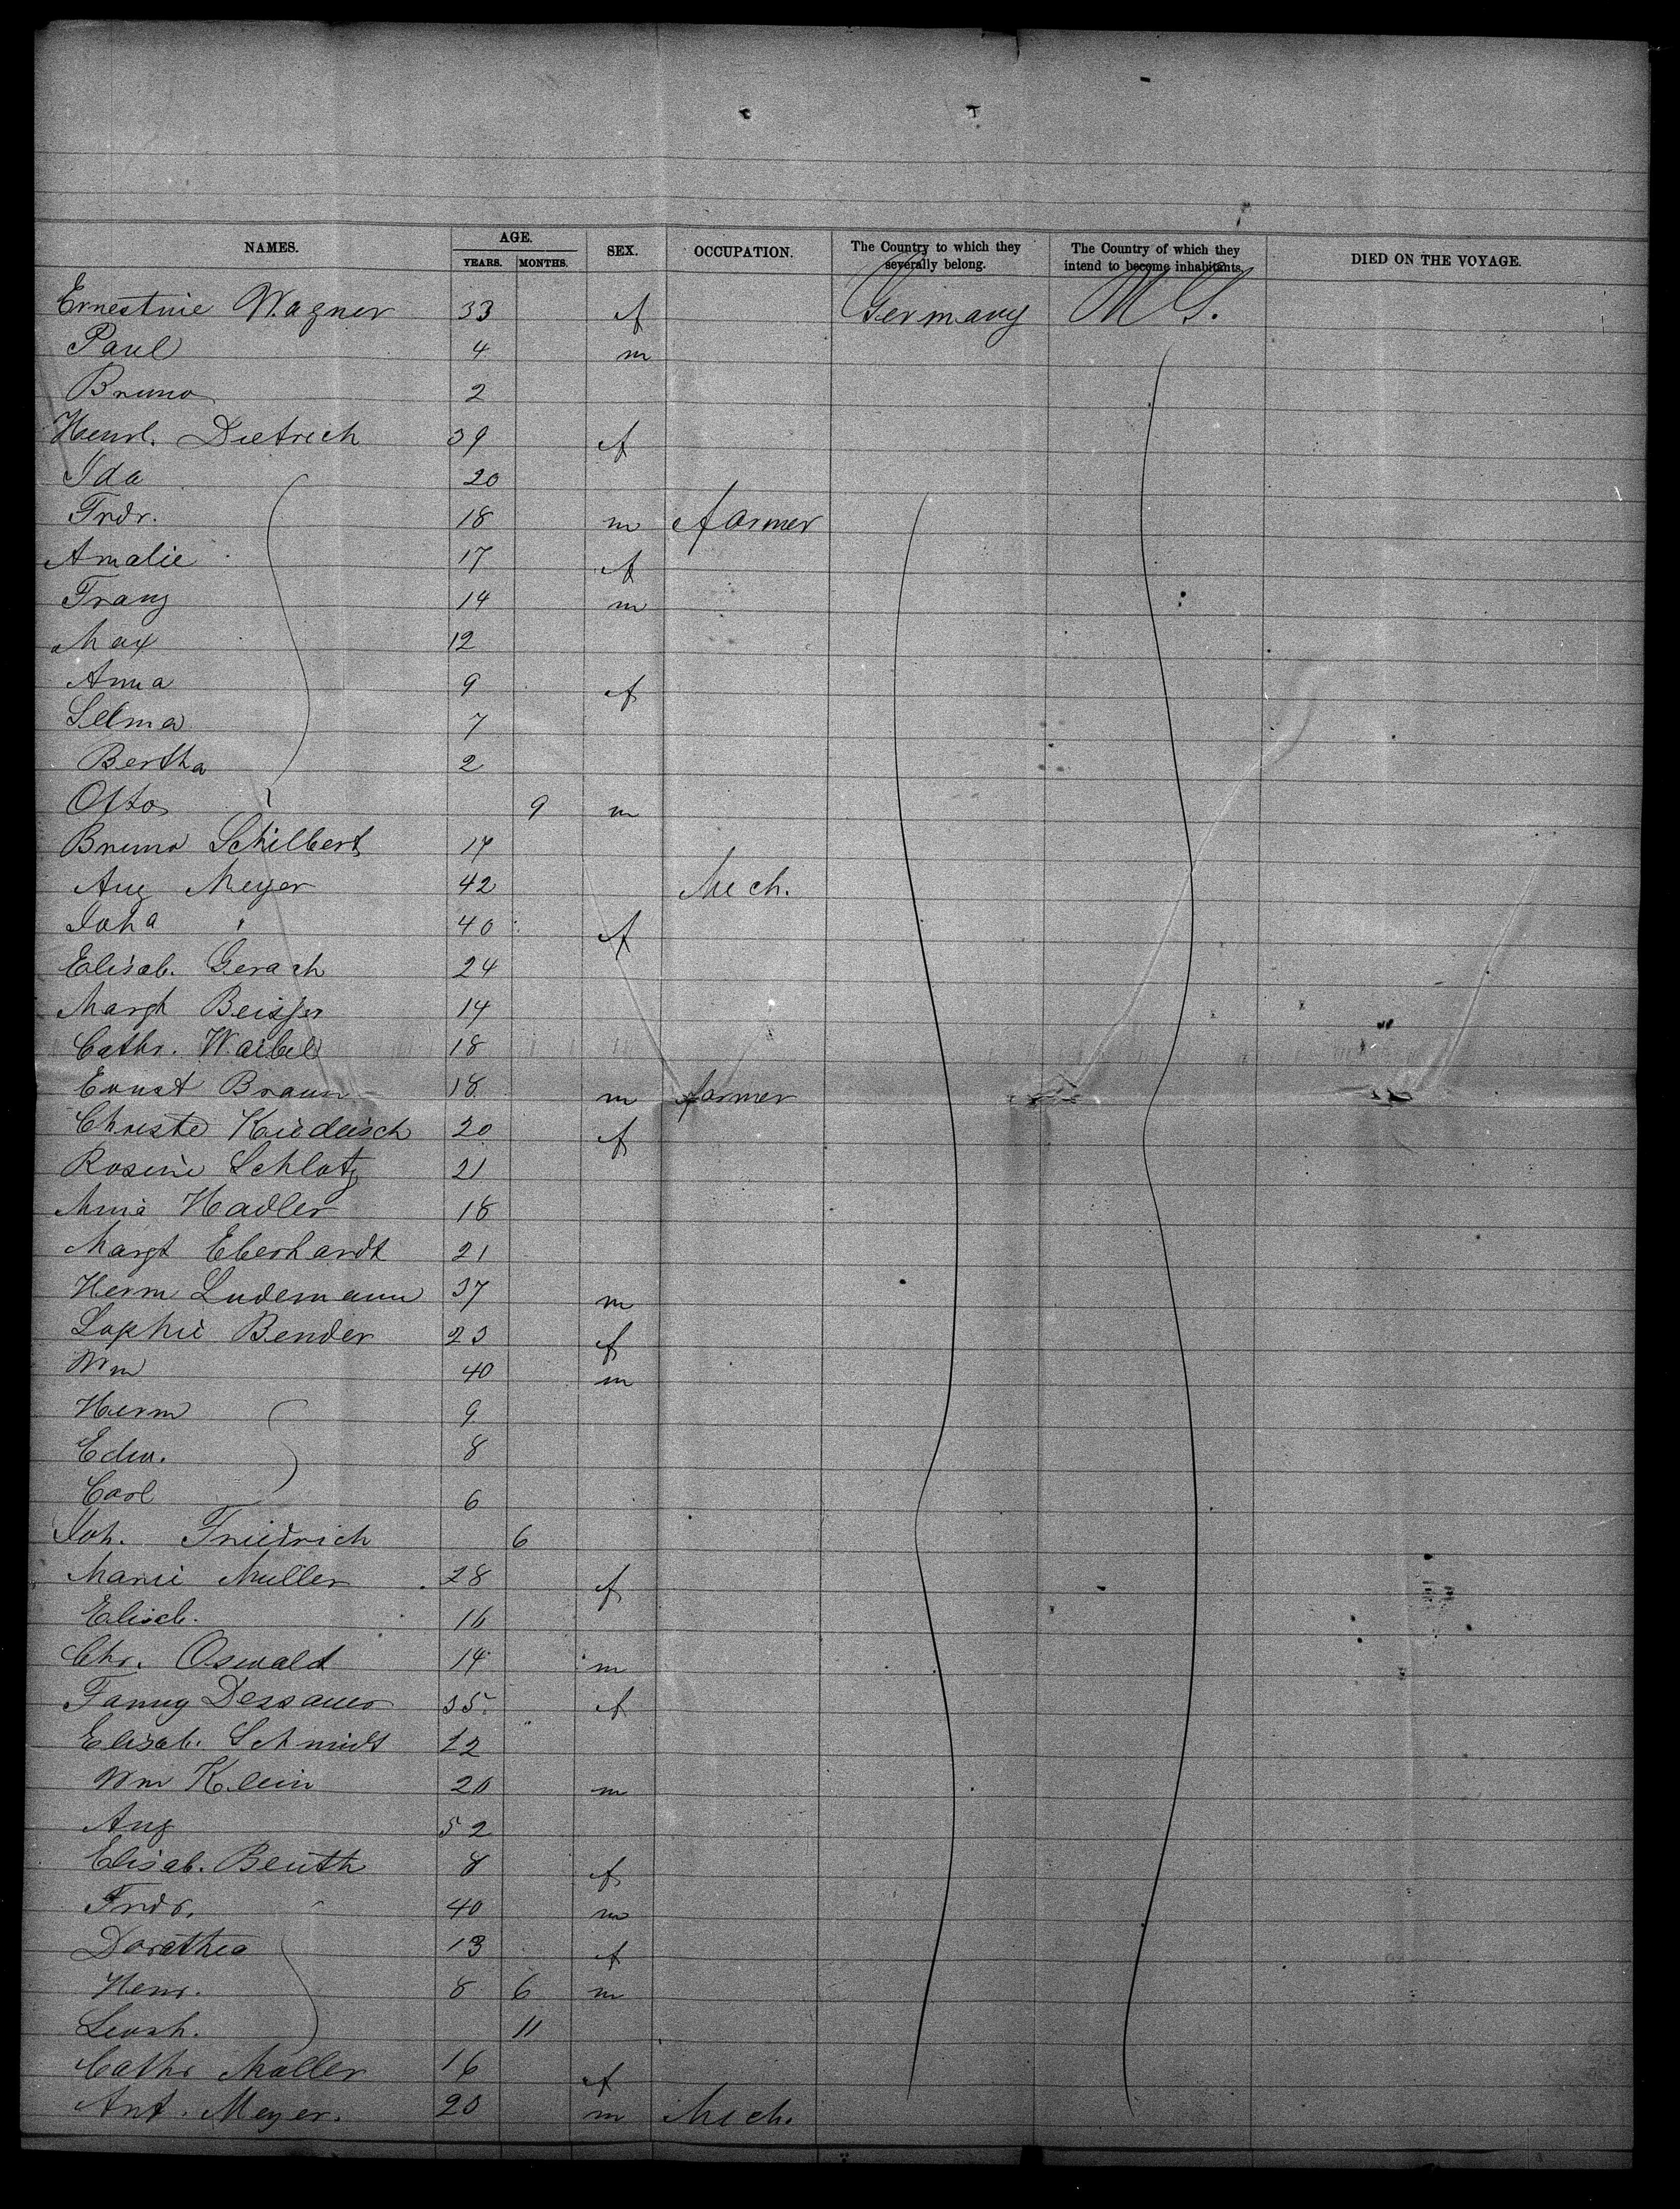 NAMES. AGE. YEARS. MONTHS. SEX. OCCUPATION. The Country to which they severally belong. The Country of which they intend to become inhabitants. DIED ON THE VOYAGE.
Ernestine Wagner 33 f Germany U S.
Paul 4 m
Bruno 2
Henrl. Dietrich 39 f
Ida 20
Frdr. 18 m farmer
Amalie 17 f
Franz 14 m
Max 12
Anna 9 f
Selma 7
Bertha 2
Otto 9 m
Bruno Schilbert 17
Aug Meyer 42 Mech.
Joha " 40 f
Elisab. Gerach 24
Margt 14
Cathr. Waibel 18
Ernst Braun 18 m farmer
Christe 20 f
Rosine Schlotz 21
Hadler 18
Margt Eberhardt 21
Herm Ludemann 37 m
Sophie Bender 23 f
Wm 40 m
Herm 9
Edw. 8
Carl 6
Joh. Friedrich 6
Marie Muller 28 f
Elisab. 16
Chr. Oswald 14 m
Fanny Dessauer 35 f
Elisab. Schmidt 12
Wm Klein 20 m
Aug 52
Elisab. Beuth 8 f
Frdr. 40 m
Dorothea 13 f
Henr. 8 6 m
11
Cathr Muller 16 f
Ant. Meyer. 20 m Mech.